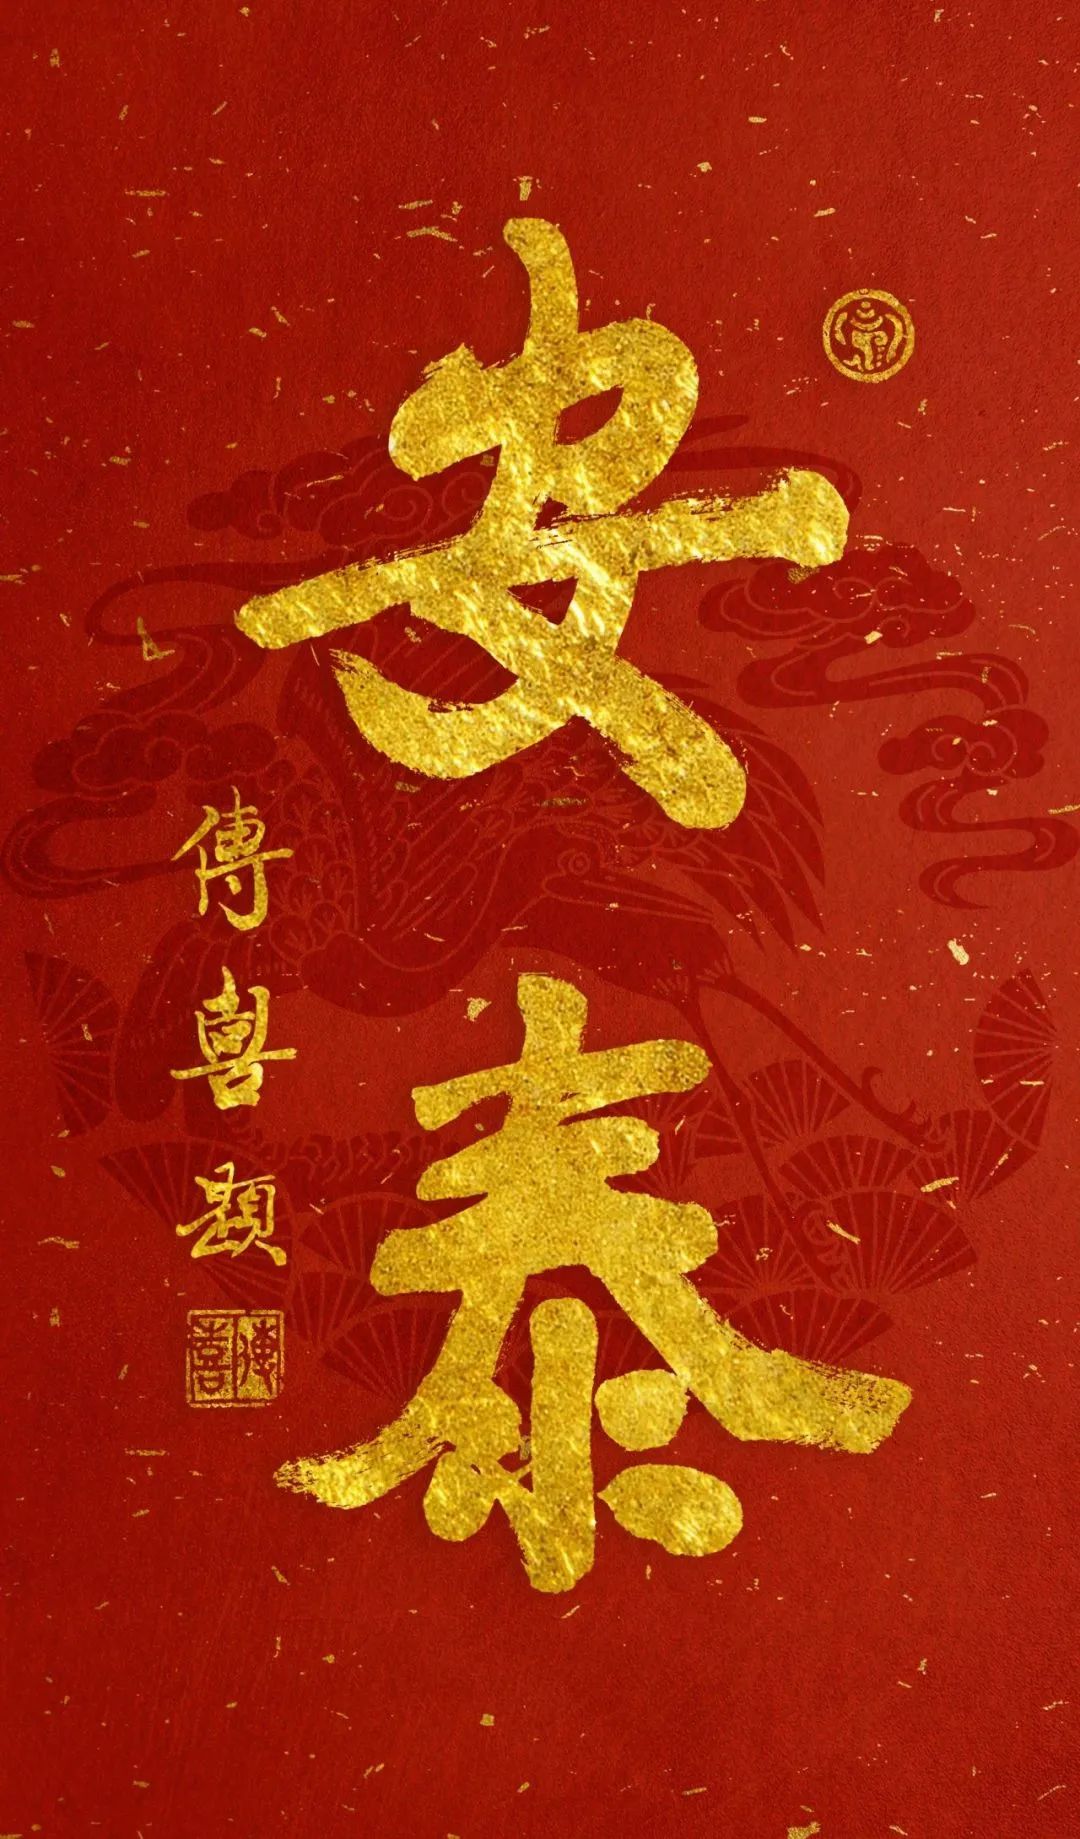 安泰
傳喜題
傳喜